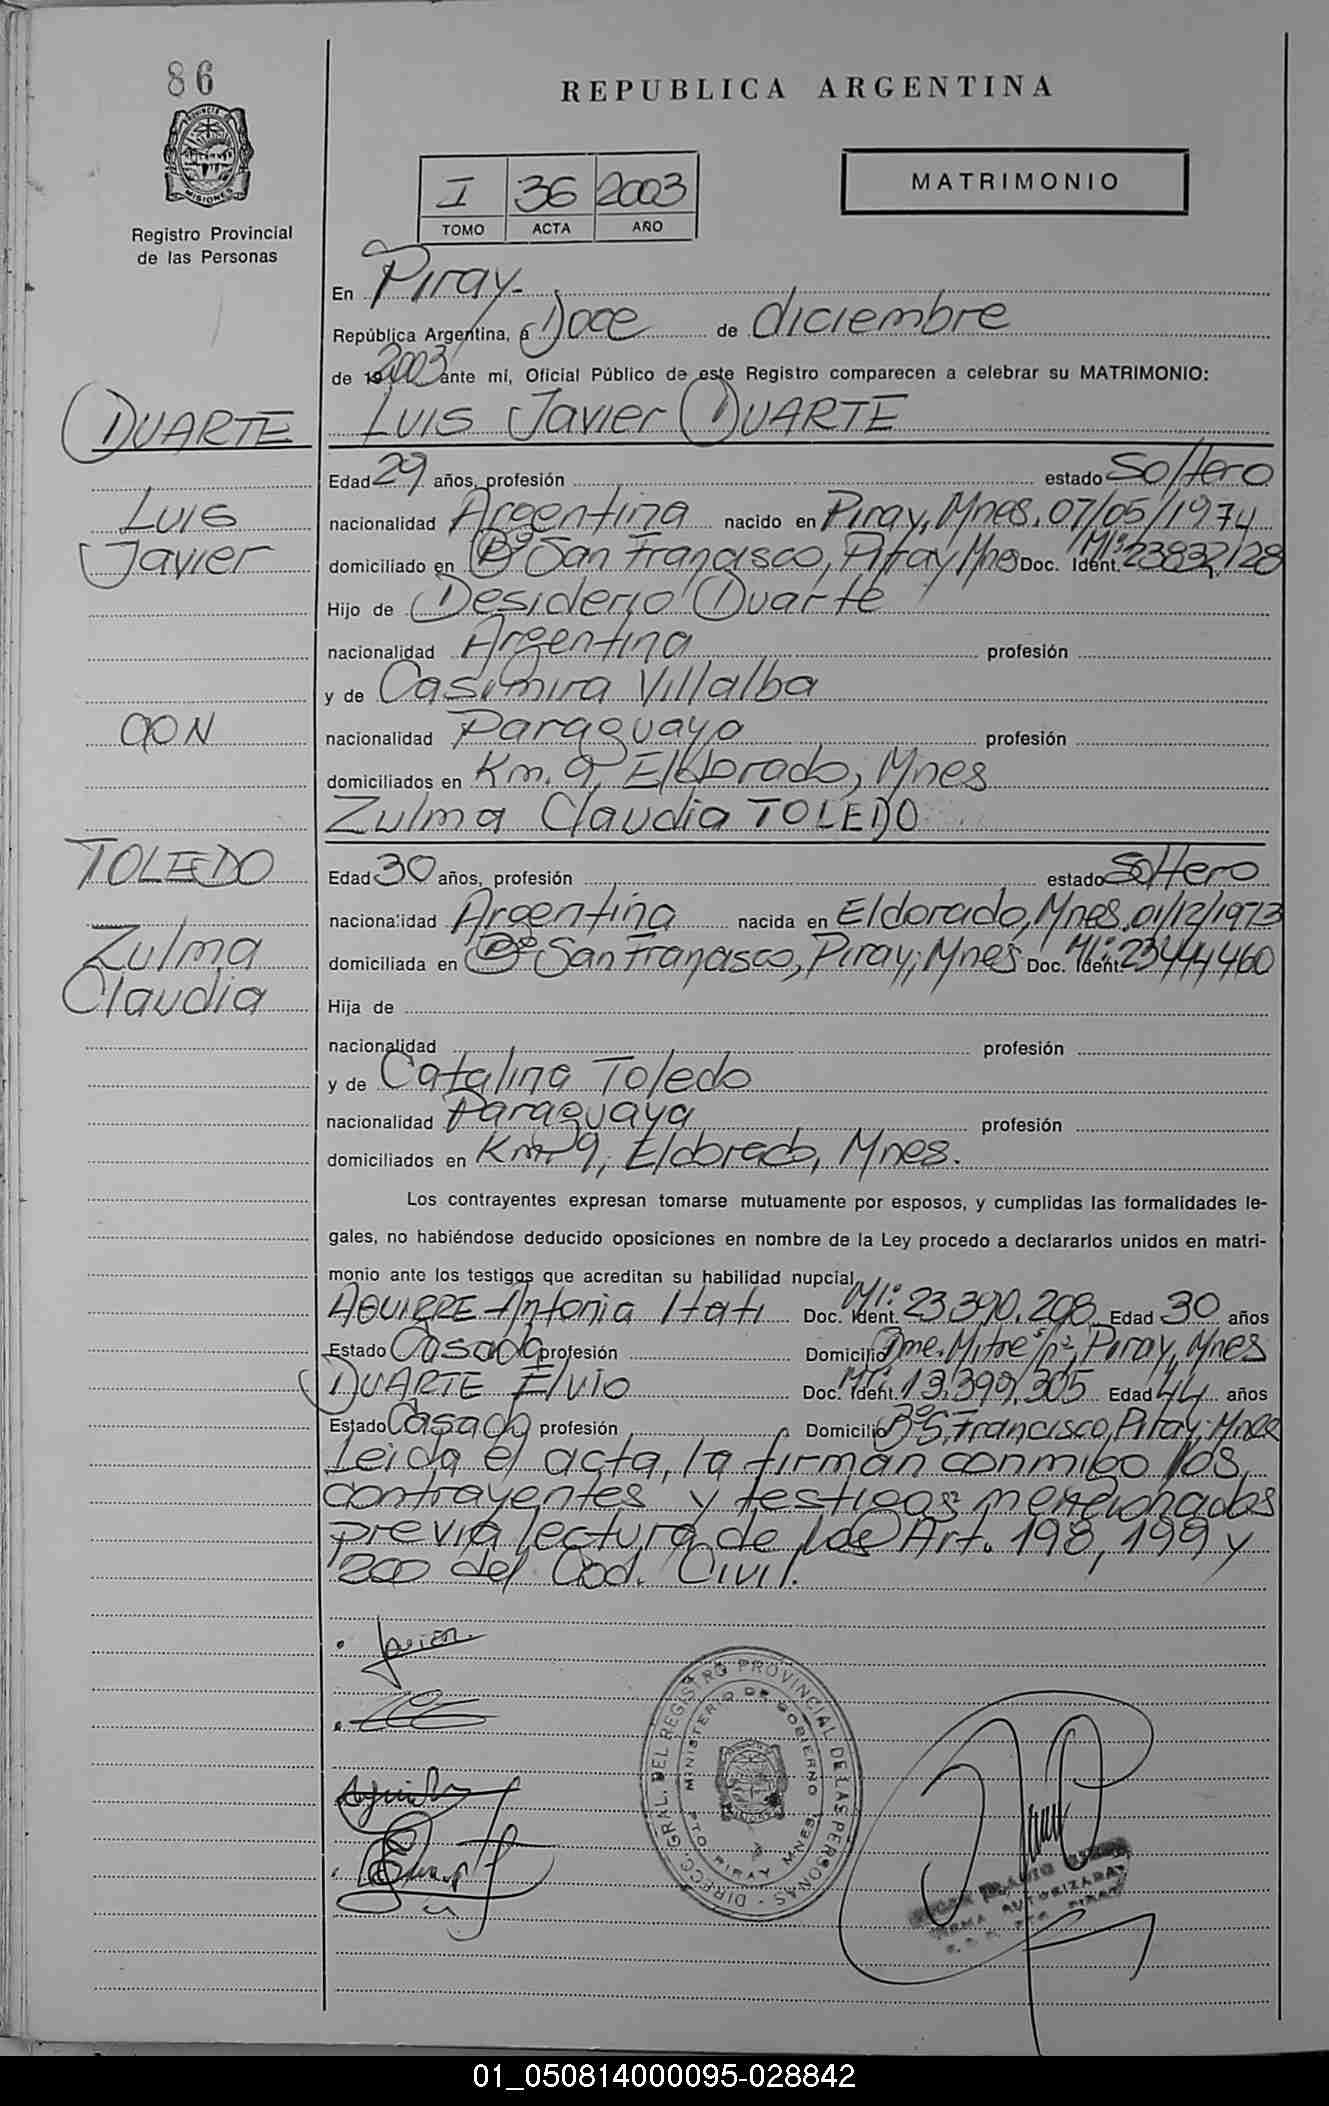 86
REPUBLICA ARGENTINA
PROVINCIA DE
MISIONES
Registro Provincial
de las Personas
I 36 2003
TOMO ACTA AÑO
MATRIMONIO
En Piray.-
República Argentina, a Doce de diciembre
de 2003 ante mí, Oficial Público de este Registro comparecen a celebrar su MATRIMONIO:
DUARTE
Luis Javier DUARTE
Edad 29 años, profesión estado Soltero
Luis
nacionalidad Argentina nacido en Piray, Mnes, 07/05/1974
Javier
domiciliado en Bº San Francisco, Piray Mnes Doc. Ident. MI: 23832128
Hijo de Desiderio Duarte
nacionalidad Argentina profesión
y de Casimira Villalba
CON
nacionalidad Paraguaya profesión
domiciliados en Km. 9, Eldorado, Mnes
Zulma Claudia TOLEDO
TOLEDO
Edad 30 años, profesión estado Soltero
nacionalidad Argentina nacida en Eldorado, Mnes, 01/12/1973
Zulma
domiciliada en Bº San Francisco, Piray, Mnes Doc. Ident. MI: 23444460
Claudia
Hija de
nacionalidad profesión
y de Catalina Toledo
nacionalidad Paraguaya profesión
domiciliados en Km. 9, Eldorado, Mnes.
Los contrayentes expresan tomarse mutuamente por esposos, y cumplidas las formalidades le-
gales, no habiéndose deducido oposiciones en nombre de la Ley procedo a declararlos unidos en matri-
monio ante los testigos que acreditan su habilidad nupcial,
AGUIRRE Antonia Itati Doc. Ident. MI: 23.390.298 Edad 30 años
Estado Casada profesión Domicilio Bme. Mitre s/nº, Piray, Mnes
DUARTE Elvio Doc. Ident. MI: 13.399.305 Edad 44 años
Estado Casado profesión Domicilio Bº S. Francisco, Piray, Mnes
Leida el acta, la firman conmigo los
contrayentes y testigos mencionados
previa lectura de los Art. 198, 199 y
200 del Cod. Civil.
Javier
DIRECC. GRAL. DEL REGISTRO PROVINCIAL DE LAS PERSONAS
MINISTERIO DE GOBIERNO
PTO PIRAY MNES.
FIRMA AUTORIZADA
PTO. PIRAY
01_050814000095-028842